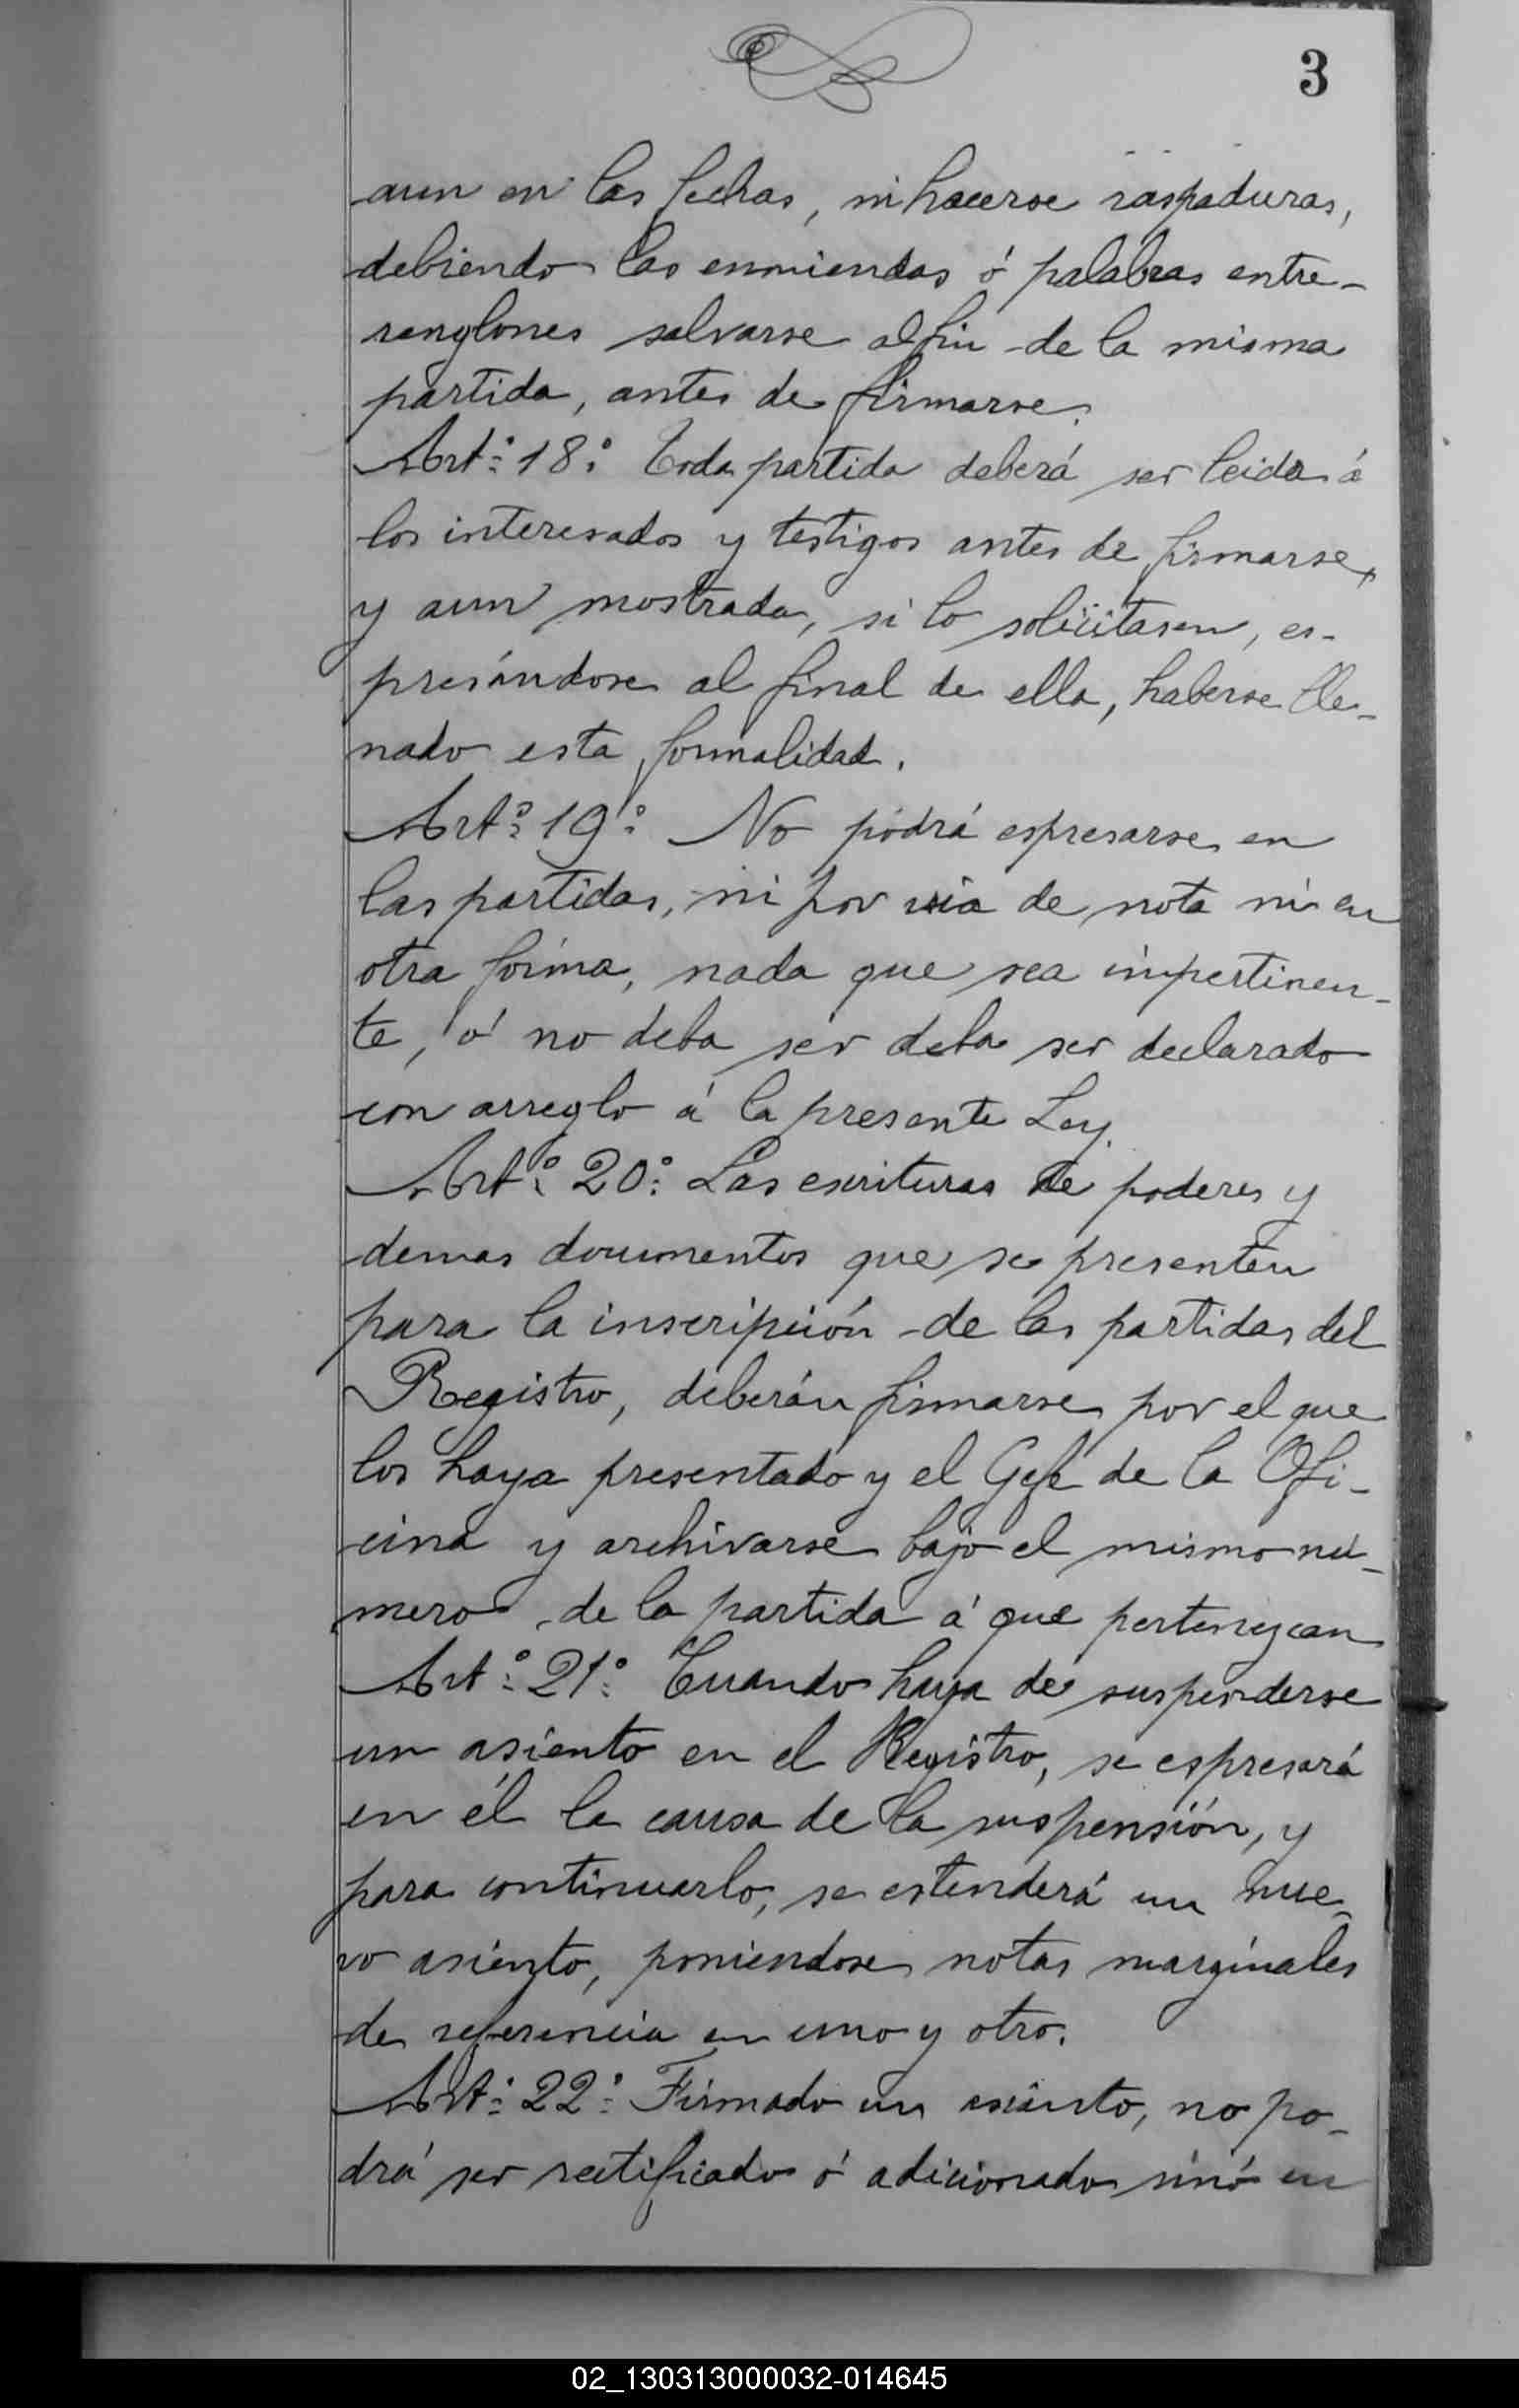 3
aun en las fechas, ni hacerse raspaduras,
debiendo las enmiendas ó palabras entre-
renglones salvarse al fin de la misma
partida, antes de firmarse.
Artº 18º Toda partida deberá ser leida á
los interesados y testigos antes de firmarse,
y aun mostrada, si lo solicitasen, es-
presándose al final de ella, haberse lle-
nado esta formalidad.
Artº 19º No podrá espresarse en
las partidas, ni por via de nota ni en
otra forma, nada que sea impertinen-
te, ó no deba ser deba ser declarado
con arreglo á la presente Ley.
Artº 20º Las escrituras de poderes y
demas documentos que se presenten
para la inscripción de las partidas del
Registro, deberán firmarse por el que
los haya presentado y el Gefe de la Ofi-
cina y archivarse bajo el mismo nú-
mero de la partida á que pertenezcan
Artº 21º Cuando haya de suspenderse
un asiento en el Registro, se espresará
en él la causa de la suspensión, y
para continuarlo, se estenderá un nue-
vo asiento, poniendose notas marginales
de referencia en uno y otro.
Artº 22º Firmado un asiento, no po-
drá ser rectificado ó adicionado sinó en
02_130313000032-014645